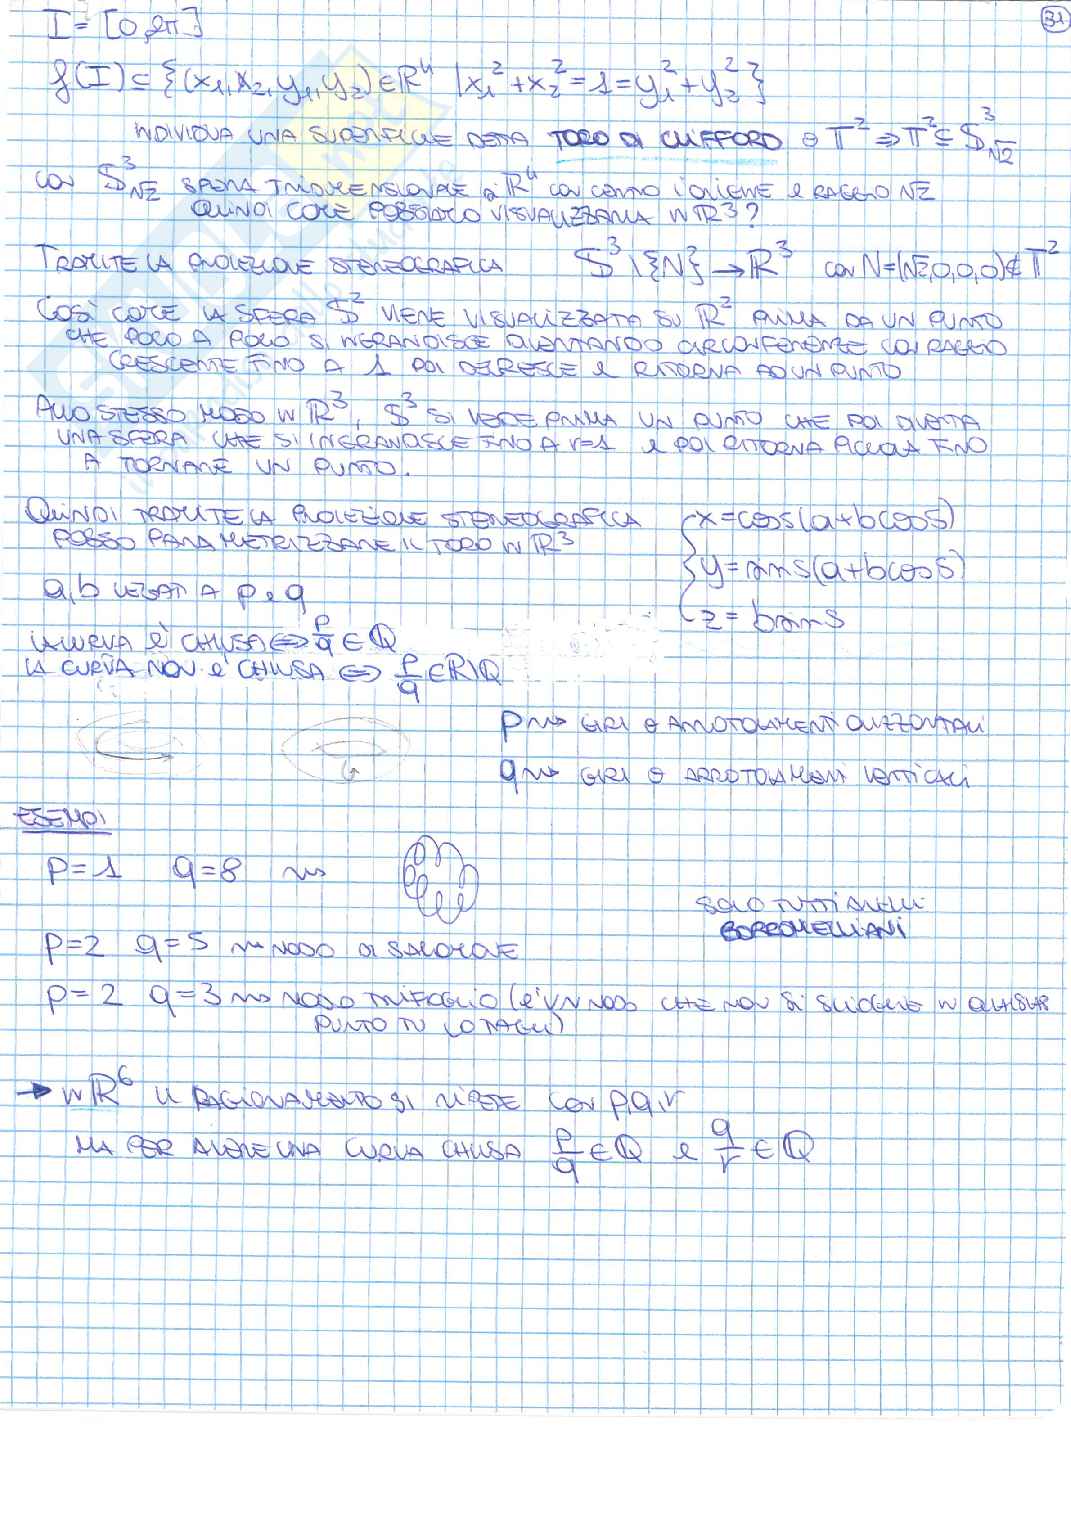 31
I = [0,2π]
f(I) ⊆ {(x₁,x₂,y₁,y₂) ∈ ℝ⁴ | x₁²+x₂²=1=y₁²+y₂²}
INDIVIDUA UNA SUPERFICIE DETTA TORO DI CLIFFORD o T² ⇒ T² ⊆ S³√2
CON S³√2 SFERA TRIDIMENSIONALE di ℝ⁴ con centro l'origine e RAGGIO √2
QUINDI COME POSSIAMO VISUALIZZARLA IN ℝ³?
TRAMITE LA PROIEZIONE STEREOGRAFICA S³\{N} → ℝ³ con N=(√2,0,0,0) ∉ T²
COSÌ COME LA SFERA S² VIENE VISUALIZZATA SU ℝ² PRIMA DA UN PUNTO
CHE POCO A POCO SI INGRANDISCE DIVENTANDO CIRCONFERENZE CON RAGGIO
CRESCENTE FINO A 1 POI DECRESCE E RITORNA AD UN PUNTO
ALLO STESSO MODO IN ℝ³, S³ SI VEDE PRIMA UN PUNTO CHE POI DIVENTA
UNA SFERA CHE SI INGRANDISCE FINO A r=1 e POI RITORNA PICCOLA FINO
A TORNARE UN PUNTO.
QUINDI TRAMITE LA PROIEZIONE STEREOGRAFICA
POSSO PARAMETRIZZARE IL TORO IN ℝ³
x = cos s (a+b cos s)
y = sin s (a+b cos s)
z = b sin s
a,b LEGATI A p e q
LA CURVA È CHIUSA ⇔ p/q ∈ ℚ
LA CURVA NON È CHIUSA ⇔ p/q ∈ ℝ\ℚ
p ⇝ GIRI o ARROTOLAMENTI ORIZZONTALI
q ⇝ GIRI o ARROTOLAMENTI VERTICALI
ESEMPI
p=1 q=8 ⇝
SONO TUTTI ANELLI
BORROMELLIANI
p=2 q=5 ⇝ NODO DI SALOMONE
p=2 q=3 ⇝ NODO TRIFOGLIO (È UN NODO CHE NON SI SCIOGLIE IN QUALSIASI
PUNTO TU LO TAGLI)
→ IN ℝ⁶ IL RAGIONAMENTO SI RIPETE CON p,q,r
MA PER AVERE UNA CURVA CHIUSA p/q ∈ ℚ e q/r ∈ ℚ